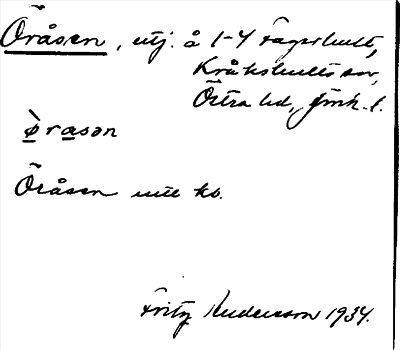 Öråsen, utj. å 1-4 Fagerhult,
Kråkshults sn,
Östra hd, Jönk. l.
öråsən
Öråsen utt kb.
Fritz Andersson 1934.